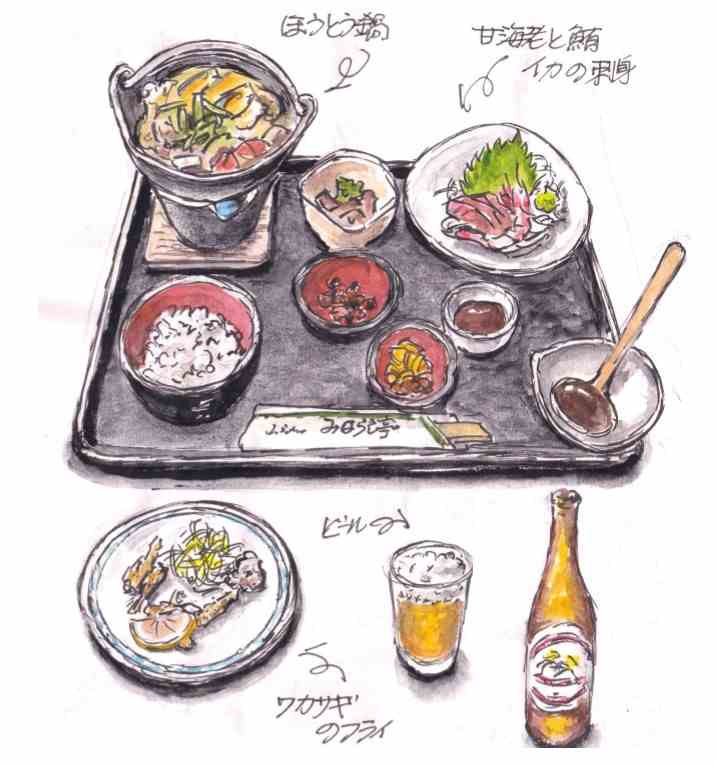 ほうとう鍋
甘海老と鮪
イカの刺身
みはらし亭
ビール
ワカサギ
のフライ